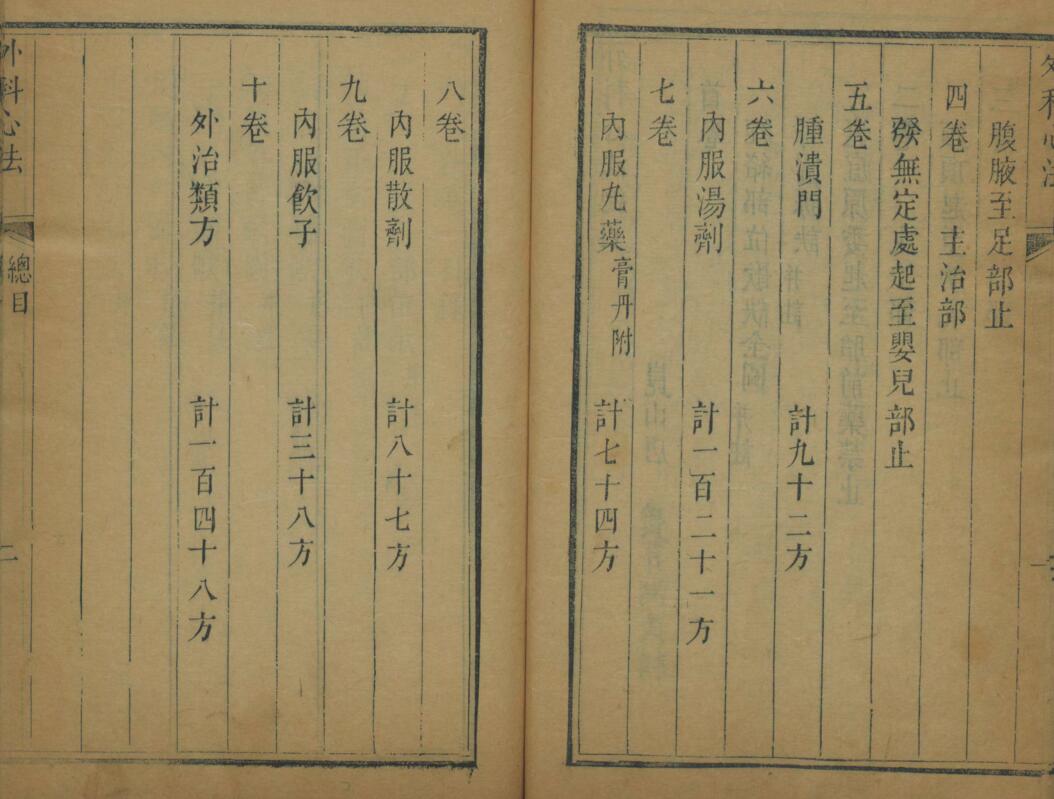 外科心法
腹腋至足部止
四卷 主治部
發無定處起至嬰兒部止
五卷
腫潰門 計九十二方
六卷
內服湯劑 計一百二十一方
七卷
內服丸藥 膏丹附 計七十四方
八卷
內服散劑 計八十七方
九卷
內服飲子 計三十八方
十卷
外治類方 計一百四十八方
外科心法 總目 二